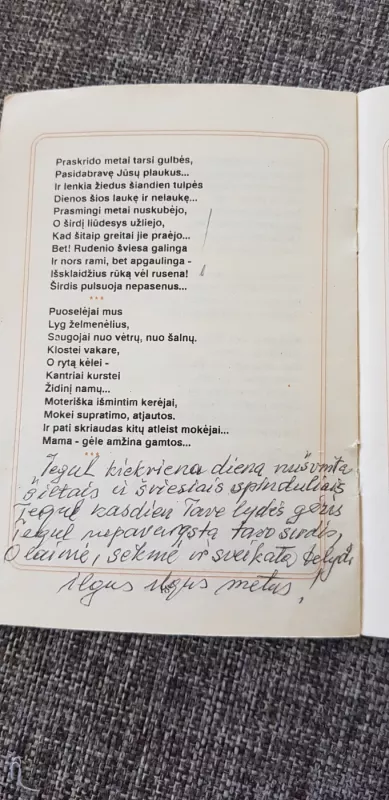 Praskrido metai tarsi gulbės,
Pasidabravę Jūsų plaukus...
Ir lenkia žiedus šiandien tulpės
Dienos šios laukę ir nelaukę...
Prasmingi metai nuskubėjo,
O širdį liūdesys užliejo,
Kad šitaip greitai jie praėjo...
Bet! Rudenio šviesa galinga
Ir nors rami, bet apgaulinga -
Išsklaidžius rūką vėl rusena!
Širdis pulsuoja nepasenus...
***
Puoselėjai mus
Lyg želmenėlius,
Saugojai nuo vėtrų, nuo šalnų.
Klostei vakare,
O rytą kėlei -
Kantriai kurstei
Židinį namų...
Moteriška išmintim kerėjai,
Mokei supratimo, atjautos.
Ir pati skriaudas kitų atleist mokėjai...
Mama - gėle amžina gamtos...
***
Tegul kiekviena diena nušvinta
Šiltais ir šviesiais spinduliais
Tegul kasdien Tave lydės gėris
tegul nepavargsta tavo širdis,
O laimė, sėkmė ir sveikata telydi
ilgus ilgus metus!